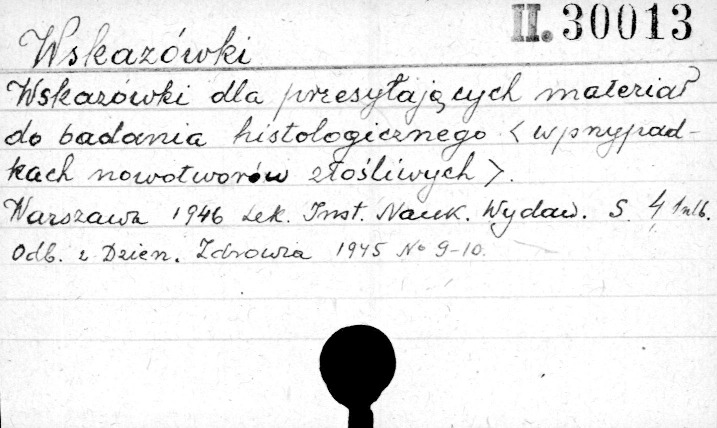 II. 30013
Wskazówki
Wskazówki dla przesyłających materiał
do badania histologicznego < w przypad-
kach nowotworów złośliwych >.
Warszawa 1946 Lek. Inst. Nauk. Wydaw. S. 4 1 nlb.
Odb. z Dzien. Zdrowia 1945 No 9-10.